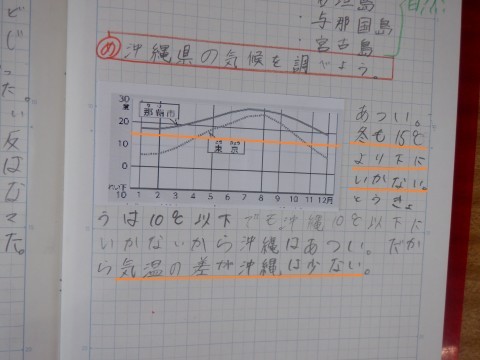 与那国島
宮古島
め 沖縄県の気候を調べよう。
30
度
20
10
0
れい下
1 2 3 4 5 6 7 8 9 10 11 12月
那覇市
東京
あつい。
冬も15℃
より下に
いかない。
とうきょ
うは10℃以下でも沖縄10℃以下に
いかないから沖縄はあつい。だか
ら気温の差が沖縄は少ない。